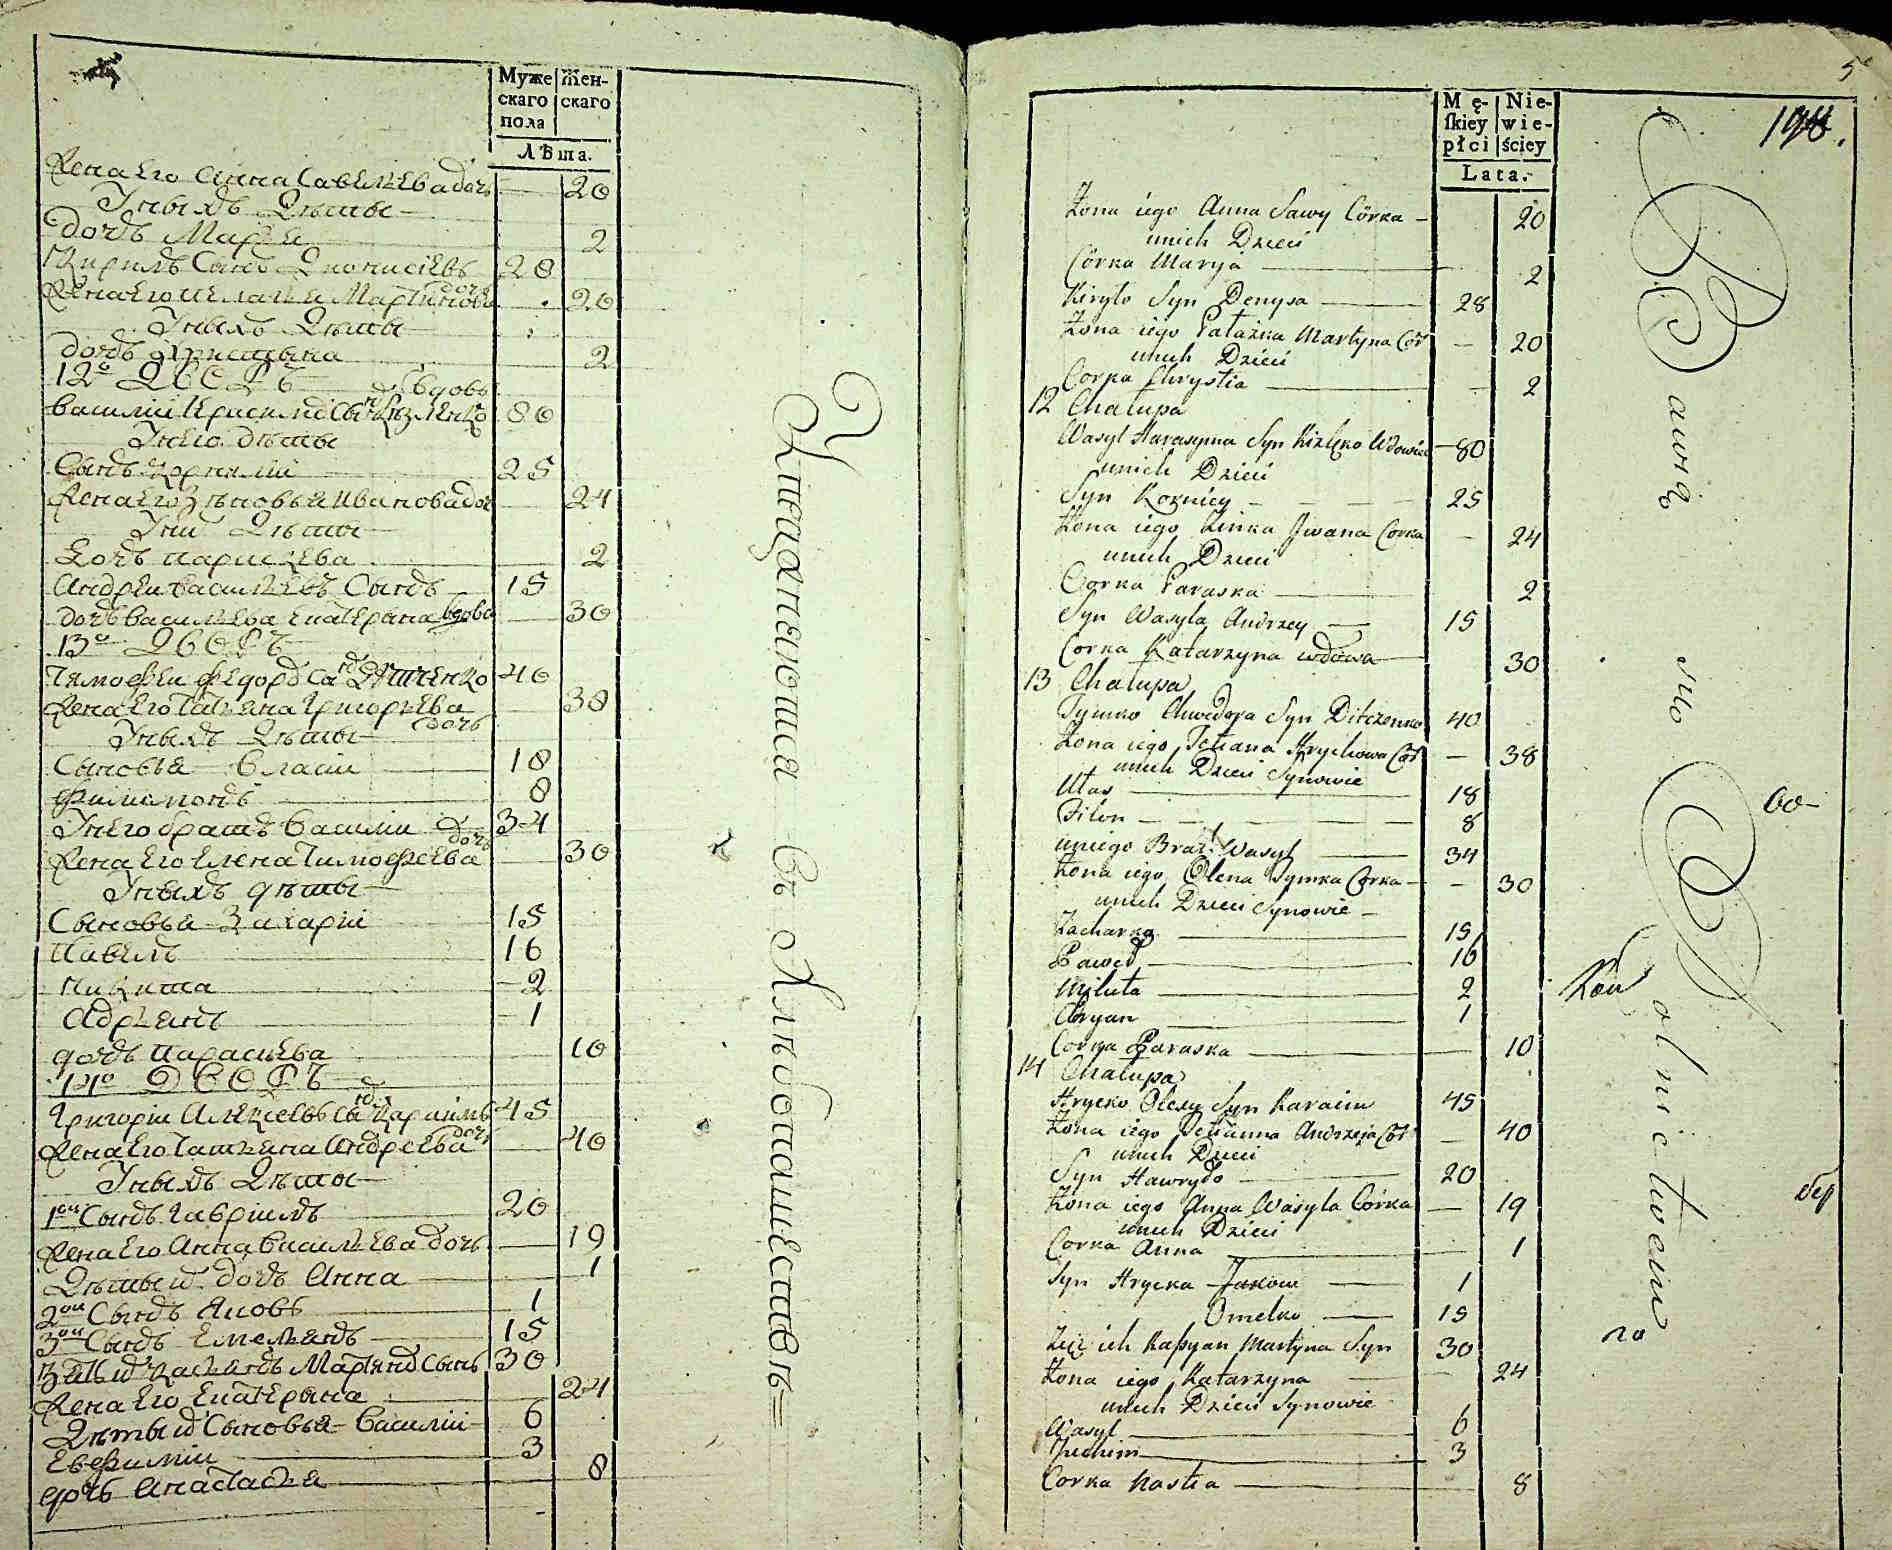 Муже
скаго
пола
Жен-
скаго
Лѣта.
Жена Его Анна Савельева дочь — 20
Уныхъ Дѣты —
дочь Марья 2
Кирилъ Сынъ Дионисіевъ 28
Жена Его Пелагея Мартинова дочь 20
Уныхъ Дѣты
дочь Христына 2
12º ДВОРЪ
Василій Герасимовъ Сынъ вдовъ 80
Унего дѣты
Сынъ Корнилій 25
Жена Его Зѣновья Иванова доч 24
Уни Дѣты
Дочь Параскева 2
Андрей Васильевъ Сынъ 15
дочь Васильева Екатерина вдова 30
13º ДВОРЪ
Тимофей Федоровъ Сынъ Дитченко 40
Жена Его Татьяна Григорьева дочь 38
Уныхъ Дѣты
Сыновья Власій 18
Филимонъ 8
Унего братъ Василій 34
Жена Его Елена Тимофеева дочь 30
Уныхъ дѣты
Сыновья Захарій 15
Павелъ 16
Никита 2
Адрьянъ 1
дочь Параскева 10
14º ДВОРЪ
Григорій Алексіевъ Сынъ Караимъ 45
Жена Его Татьяна Андреева дочь 40
Уныхъ Дѣты
1ой Сынъ Гавриилъ 20
Жена Его Анна Васильева дочь 19
Дѣты ихъ дочь Анна 1
2ой Сынъ Яковъ 1
3ой Сынъ Емельянъ 15
Зять их Касьянъ Мартынов Сынъ 30
Жена Его Екатерына 24
Дѣти их Сыновья Василій 6
Евфимій 3
дочь Анастасія 8
въ Хлѣбопашествѣ
5
198.
Mę-
ſkiey
płci
Nie-
wie-
ściey
Lata.
Żona iego Anna Sawy Córka — 20
unich Dzieci
Córka Marya — 2
Kiryło Syn Denysa — 28
Żona iego Pałażka Martyna Cór — 20
unich Dzieci
Corka Chrystia — 2
12 Chałupa
Wasyl Harasyma Syn Wdowiec — 80
unich Dzieci
Syn Korniey — 25
Żona iego Zinka Jwana Corka — 24
unich Dzieci
Corka Paraska — 2
Syn Wasyla Andrzey — 15
Corka Katarzyna wdowa 30
13 Chałupa
Tymko Chwedora Syn Ditczenko 40
Żona iego Tetiana Hrychowa Cór — 38
unich Dzieci Synowie
Ułas — 18
Filon — 8
uniego Brat Wasyl — 34
Żona iego Olena Tymka Córka — 30
unich Dzieci Synowie —
Zacharko — 15
Paweł — 16
Mikita — 2
Adryan — 1
Corka Paraska — 10
14 Chałupa
Hrycko Olexy Syn Karaim 45
Żona iego Tetianna Andrzeja Cór — 40
unich Dzieci
Syn Hawryło — 20
Żona iego Anna Wasyla Córka — 19
unich Dzieci
Corka Anna — 1
Syn Hrycka Jakow — 1
Omelko — 15
Zięć ich Kaſsyan Martyna Syn 30
Żona iego Katarzyna — 24
unich Dzieci Synowie
Wasyl — 6
Juchim — 3
Corka Nastia — 8
Bawią się Rolnictwem